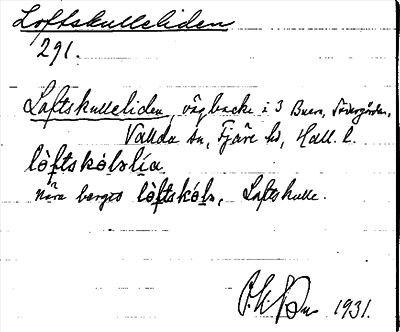 Loftskulleliden
291.
Loftskulleliden, vägbacke i 3 Buera, Södergården,
Vallda sn, Fjäre hd, Hall. l.
lòftskólslia
nära berget lòftskóls, Loftskulle.
1931.